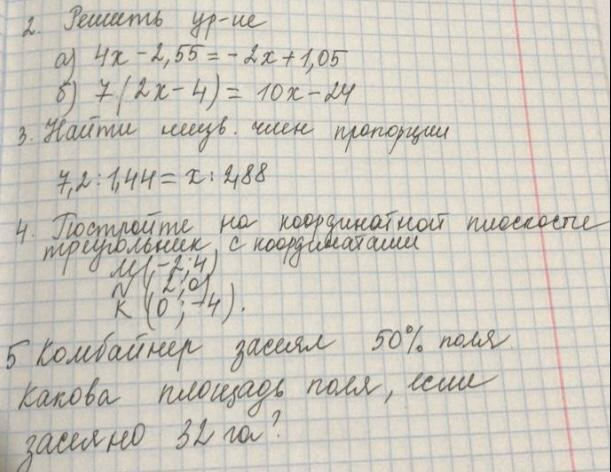 2. Решить ур-ие
а) 4x - 2,55 = - 2x + 1,05
б) 7 (2x - 4) = 10x - 24
3. Найти неизв. член пропорции
7,2 : 1,44 = x : 2,88
4. Постройте на координатной плоскости
треугольник с координатами
M (-2; 4)
N (2; 0)
K (0 ; -4).
5 Комбайнер засеял 50% поля
Какова площадь поля, если
засеяно 32 га?